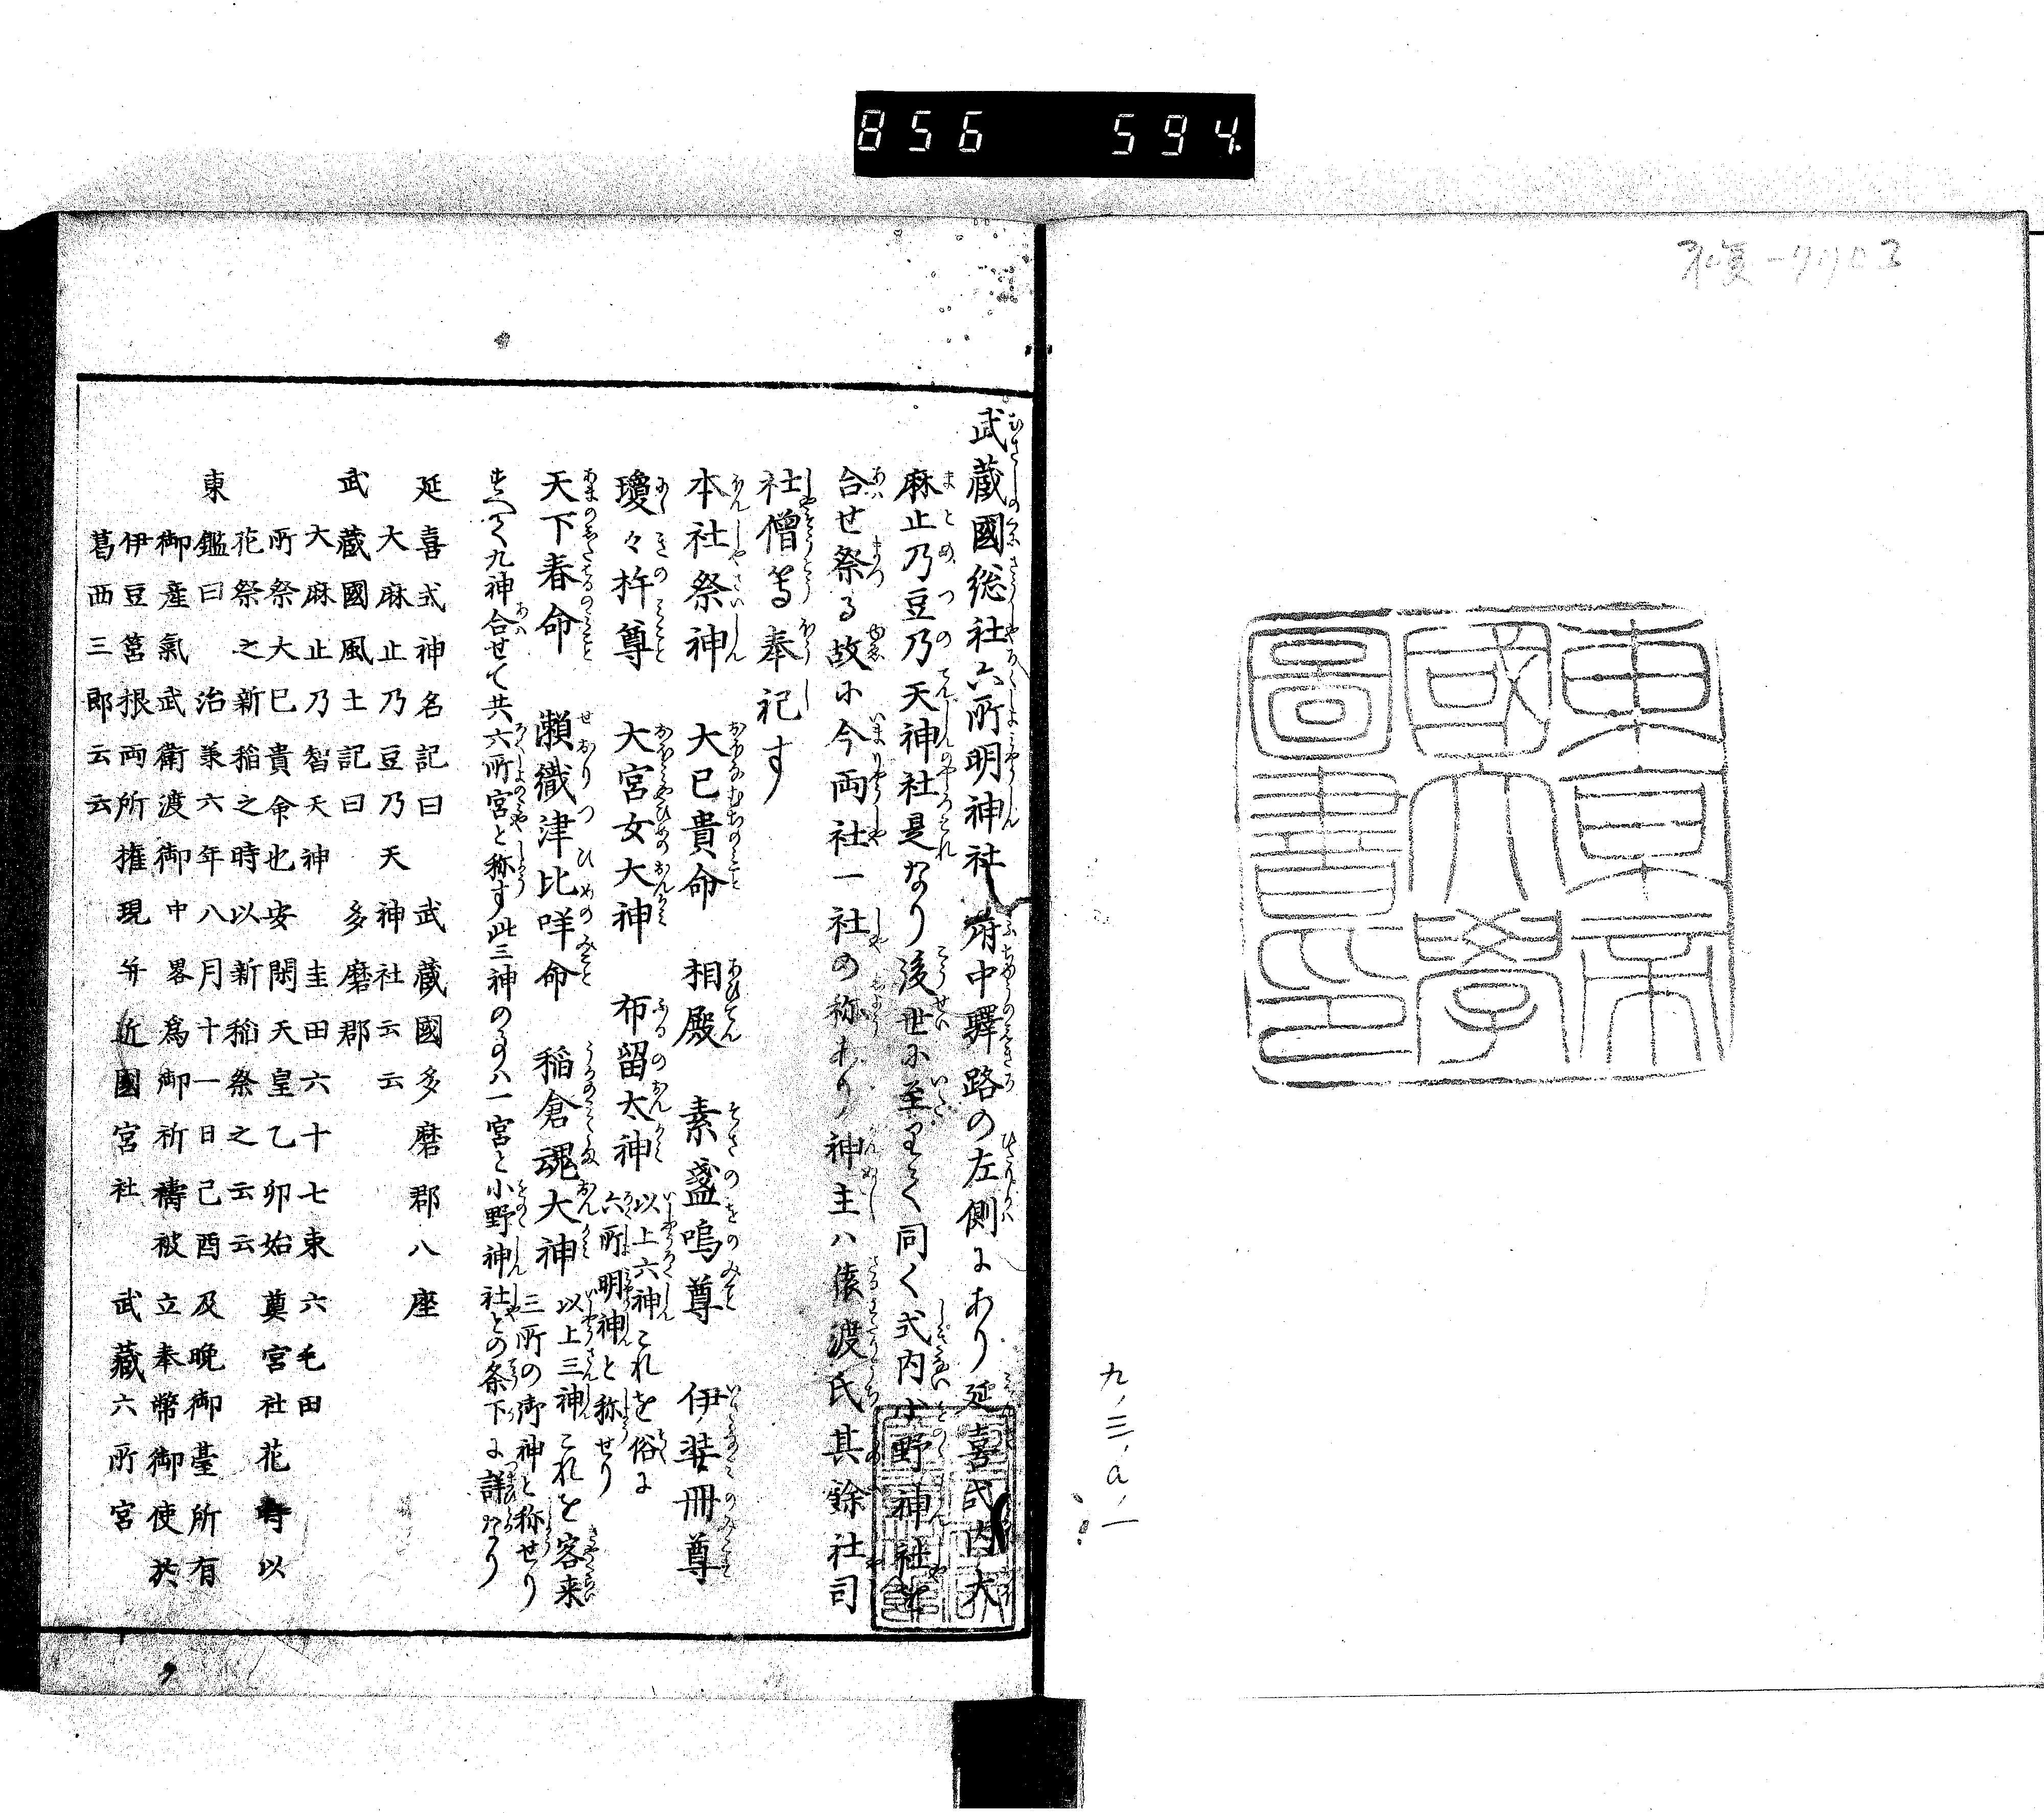 856 594
東京
帝國大學
圖書印
九、三、a、一
武藏國総社六所明神社 府中驛路の左側にあり延喜式内大
麻止乃豆乃天神社是なり後世に至りて同く式内小野神社を
合せ祭る故に今両社一社の称あり神主ハ猿渡氏其餘社司
社僧等奉祀す
本社祭神 大已貴命 相殿 素盞嗚尊 伊弉冊尊
瓊々杵尊 大宮女大神 布留太神 以上六神これを俗に
六所明神と称せり
天下春命 瀬織津比咩命 稲倉魂大神 以上三神これを客来
三所の御神と称せり
すへて九神合せて共六所宮と称す此三神の事ハ一宮と小野神社との条下に詳なり
延喜式神名記曰 武藏國多磨郡八座
大麻止乃豆乃天神社云云
武藏國風土記曰 多磨郡
大麻止乃智天神 圭田六十七束六毛田
所祭大巳貴命也安閑天皇乙卯始奠宮社花時以
花祭之新稲之時以新稲祭之云云
東鑑曰 治兼六年八月十一日己酉及晩御臺所有
御産氣武衛渡御 中畧 爲御祈禱被立奉幣御使於
伊豆筥根両所権現并近國宮社 武藏六所宮
葛西三郎云云